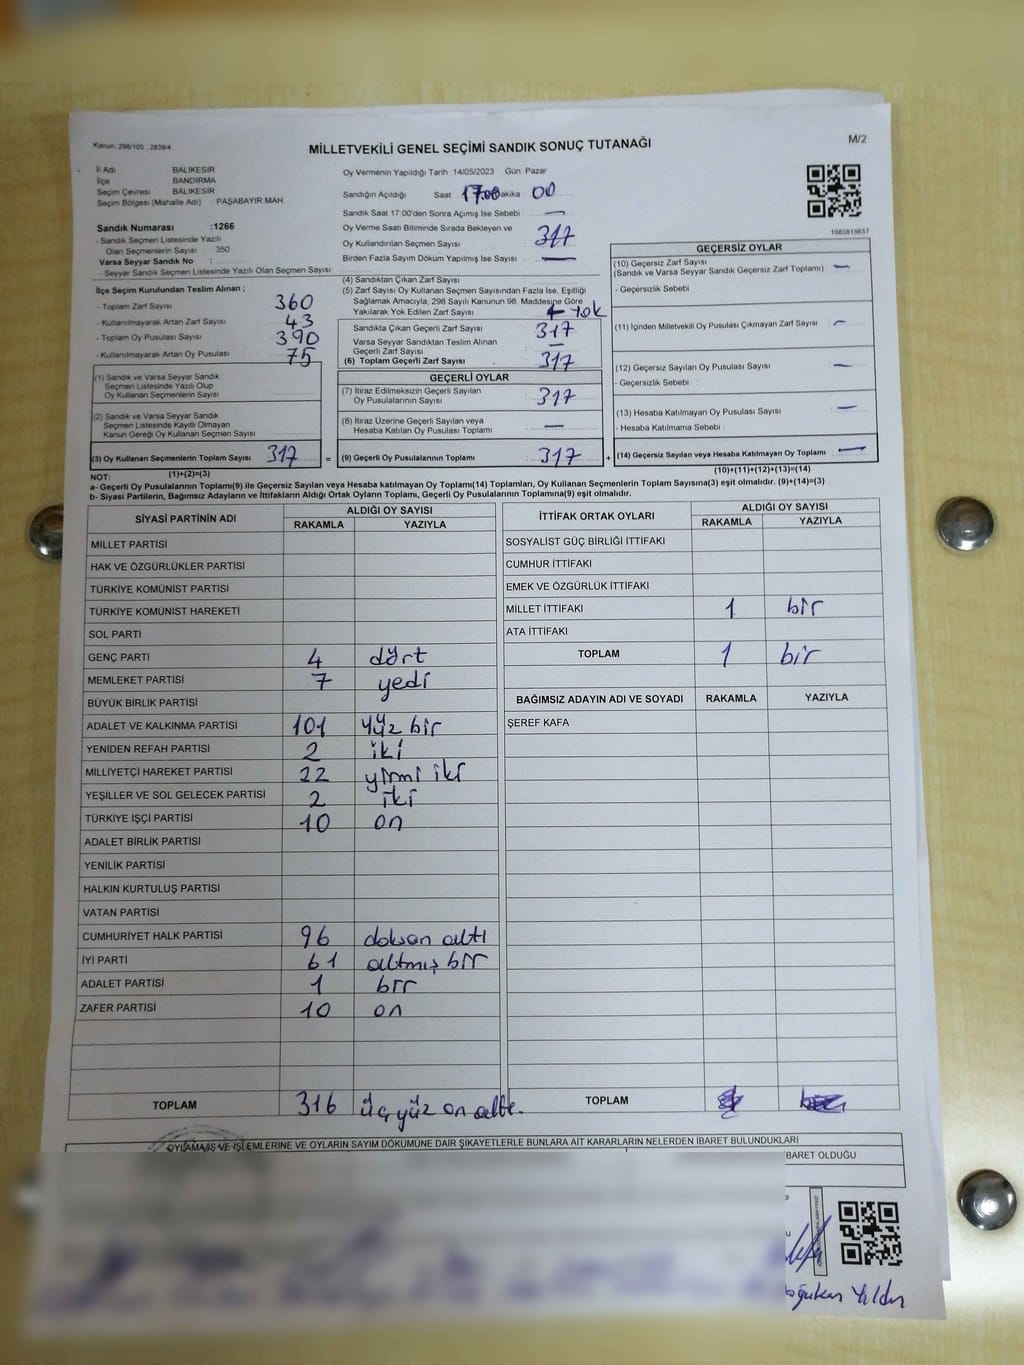 Kanun, 298/105 , 2839/4
MİLLETVEKİLİ GENEL SEÇİMİ SANDIK SONUÇ TUTANAĞI
M/2
İl Adı BALIKESİR
İlçe BANDIRMA
Seçim Çevresi BALIKESİR
Seçim Bölgesi (Mahalle Adı) PAŞABAYIR MAH.
Sandık Numarası :1266
- Sandık Seçmen Listesinde Yazılı
Olan Seçmenlerin Sayısı 350
Varsa Seyyar Sandık No :
- Seyyar Sandık Seçmen Listesinde Yazılı Olan Seçmen Sayısı :
İlçe Seçim Kurulundan Teslim Alınan ;
- Toplam Zarf Sayısı 360
- Kullanılmayarak Artan Zarf Sayısı 43
- Toplam Oy Pusulası Sayısı 390
- Kullanılmayarak Artan Oy Pusulası 75
(1) Sandık ve Varsa Seyyar Sandık
Seçmen Listesinde Yazılı Olup
Oy Kullanan Seçmenlerin Sayısı
(2) Sandık ve Varsa Seyyar Sandık
Seçmen Listesinde Kayıtlı Olmayan
Kanun Gereği Oy Kullanan Seçmen Sayısı
(3) Oy Kullanan Seçmenlerin Toplam Sayısı 317 =
(1)+(2)=(3)
Oy Vermenin Yapıldığı Tarih 14/05/2023 Gün: Pazar
Sandığın Açıldığı Saat 17.00 Dakika 00
Sandık Saat 17:00'den Sonra Açımış İse Sebebi : —
Oy Verme Saati Bitiminde Sırada Bekleyen ve
Oy Kullandırılan Seçmen Sayısı 317
Birden Fazla Sayım Döküm Yapılmış İse Sayısı : —
(4) Sandıktan Çıkan Zarf Sayısı
(5) Zarf Sayısı Oy Kullanan Seçmen Sayısından Fazla İse, Eşitliği
Sağlamak Amacıyla, 298 Sayılı Kanunun 98. Maddesine Göre
Yakılarak Yok Edilen Zarf Sayısı ← Yok
Sandıkta Çıkan Geçerli Zarf Sayısı 317
Varsa Seyyar Sandıktan Teslim Alınan
Geçerli Zarf Sayısı —
(6) Toplam Geçerli Zarf Sayısı 317
GEÇERLİ OYLAR
(7) İtiraz Edilmeksizin Geçerli Sayılan
Oy Pusulalarının Sayısı 317
(8) İtiraz Üzerine Geçerli Sayılan veya
Hesaba Katılan Oy Pusulası Toplamı —
(9) Geçerli Oy Pusulalarının Toplamı 317 +
1083815637
GEÇERSİZ OYLAR
(10) Geçersiz Zarf Sayısı
(Sandık ve Varsa Seyyar Sandık Geçersiz Zarf Toplamı) —
- Geçersizlik Sebebi :
(11) İçinden Milletvekili Oy Pusulası Çıkmayan Zarf Sayısı —
(12) Geçersiz Sayılan Oy Pusulası Sayısı —
- Geçersizlik Sebebi :
(13) Hesaba Katılmayan Oy Pusulası Sayısı —
- Hesaba Katılmama Sebebi :
(14) Geçersiz Sayılan veya Hesaba Katılmayan Oy Toplamı —
(10)+(11)+(12)+(13)=(14)
NOT:
a- Geçerli Oy Pusulalarının Toplamı(9) ile Geçersiz Sayılan veya Hesaba Katılmayan Oy Toplamı(14) Toplamları, Oy Kullanan Seçmenlerin Toplam Sayısına(3) eşit olmalıdır. (9)+(14)=(3)
b- Siyasi Partilerin, Bağımsız Adayların ve İttifakların Aldığı Ortak Oyların Toplamı, Geçerli Oy Pusulalarının Toplamına(9) eşit olmalıdır.
SİYASİ PARTİNİN ADI ALDIĞI OY SAYISI
RAKAMLA YAZIYLA
MİLLET PARTİSİ
HAK VE ÖZGÜRLÜKLER PARTİSİ
TÜRKİYE KOMÜNİST PARTİSİ
TÜRKİYE KOMÜNİST HAREKETİ
SOL PARTİ
GENÇ PARTİ 4 dört
MEMLEKET PARTİSİ 7 yedi
BÜYÜK BİRLİK PARTİSİ
ADALET VE KALKINMA PARTİSİ 101 yüz bir
YENİDEN REFAH PARTİSİ 2 iki
MİLLİYETÇİ HAREKET PARTİSİ 22 yirmi iki
YEŞİLLER VE SOL GELECEK PARTİSİ 2 iki
TÜRKİYE İŞÇİ PARTİSİ 10 on
ADALET BİRLİK PARTİSİ
YENİLİK PARTİSİ
HALKIN KURTULUŞ PARTİSİ
VATAN PARTİSİ
CUMHURİYET HALK PARTİSİ 96 doksan altı
İYİ PARTİ 61 altmış bir
ADALET PARTİSİ 1 bir
ZAFER PARTİSİ 10 on
TOPLAM 316 üç yüz on altı.
İTTİFAK ORTAK OYLARI ALDIĞI OY SAYISI
RAKAMLA YAZIYLA
SOSYALİST GÜÇ BİRLİĞİ İTTİFAKI
CUMHUR İTTİFAKI
EMEK VE ÖZGÜRLÜK İTTİFAKI
MİLLET İTTİFAKI 1 bir
ATA İTTİFAKI
TOPLAM 1 bir
BAĞIMSIZ ADAYIN ADI VE SOYADI RAKAMLA YAZIYLA
ŞEREF KAFA
TOPLAM
OYLAMA İŞ VE İŞLEMLERİNE VE OYLARIN SAYIM DÖKÜMÜNE DAİR ŞİKAYETLERLE BUNLARA AİT KARARLARIN NELERDEN İBARET BULUNDUKLARI
İBARET OLDUĞU